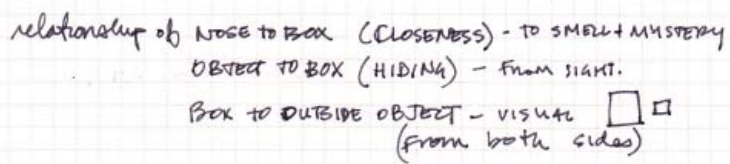 relationship of NOSE TO BOX (CLOSENESS) - TO SMELL + MYSTERY
OBJECT TO BOX (HIDING) - FROM SIGHT.
BOX TO OUTSIDE OBJECT - VISUAL
(from both sides)